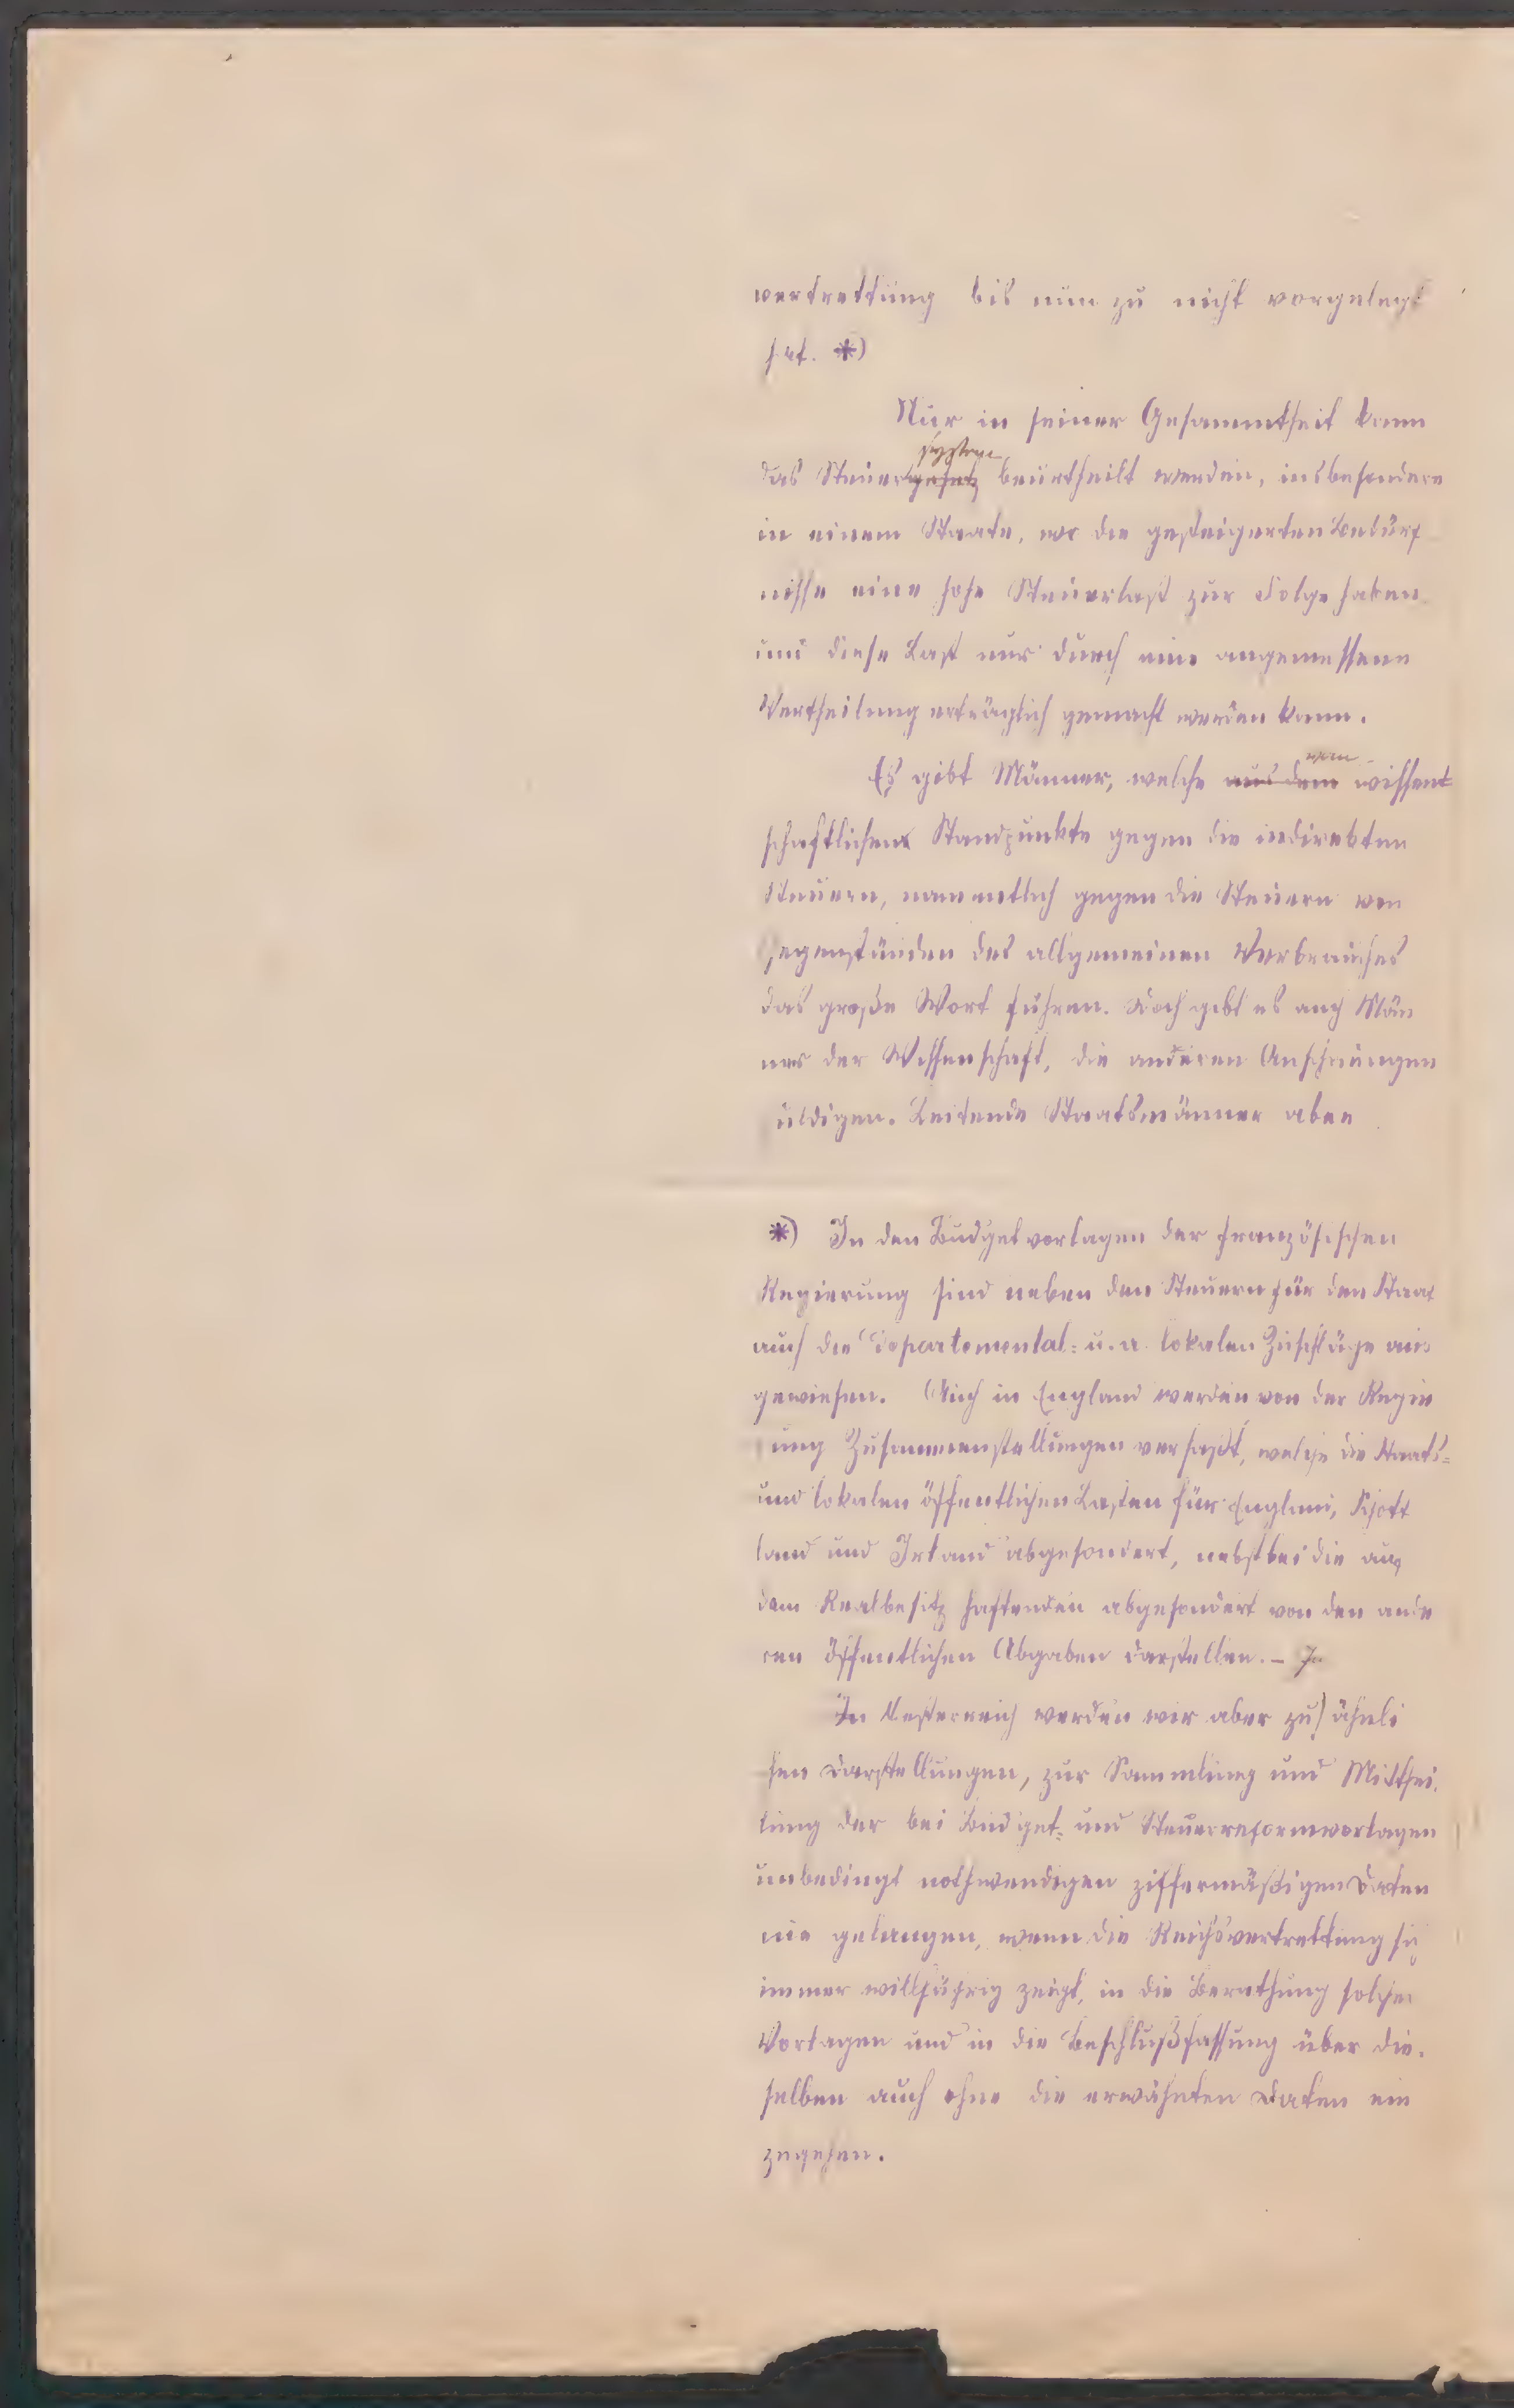 vertrettung bis nun zu nicht vorgelegt
hat. *)
Nur in seiner Gesammtheit kann
system
das Steuergesetz beurtheilt werden, insbesondere
in einem Staate, wo die gesteigerten Bedürf
nisse eine hohe Steuerlast zur Folge haben
und diese Last nur durch eine angemessene
Vertheilung erträglich gemacht werden kann.
vom
Es gibt Männer, welche aus dem wissent
schaftlichen Standpunkte gegen die indirekten
Steuern, namentlich gegen die Steuern von
Gegenständen des allgemeinen Verbrauches
das große Wort führen. Doch gibt es auch Män
ner der Wissenschaft, die anderen Anschauungen
huldigen. Leitende Staatsmänner aber
*) In den Budgetvorlagen der französischen
Regierung sind neben den Steuern für den Staat
auch die Departemental= u. a. lokalen Zuschläge aus
gewiesen. Auch in England werden von der Regie
rung Zusammenstellungen verfaßt, welche die Staats=
und lokalen öffentlichen Lasten für England, Schott
land und Irland abgesondert, nebstbei die auf
dem Realbesitz haftenden abgesondert von den ande
ren öffentlichen Abgaben darstellen. –
In Oesterreich werden wir aber zu ähnli
chen Darstellungen, zur Sammlung und Mitthei
lung der bei Budget= und Steuerreformvorlagen
unbedingt nothwendigen ziffermäßigen Daten
nie gelangen, wenn die Reichsvertrettung sich
immer willfährig zeigt, in die Berathung solcher
Vorlagen und in die Beschlußfassung über die
selben auch ohne die erwähnten Daten ein
zugehen.